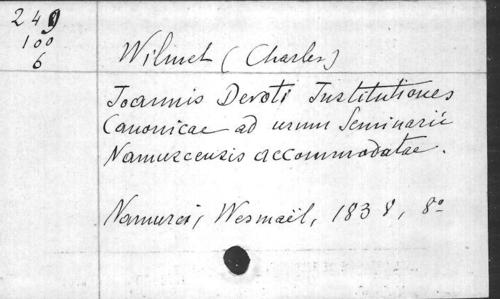 249
100
6
Wilmet (Charles)
Joannis Devoti Institutiones
Canonicae ad usum Seminarii
Namurcensis accommodatae.
Namurci, Wesmaël, 1838, 8º